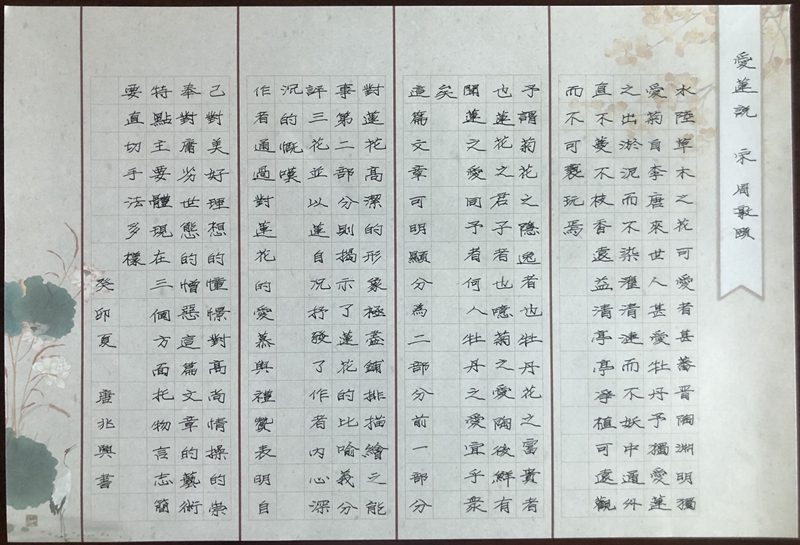 愛蓮説 宋 周敦頤
水陸草木之花可愛者甚蕃晋陶淵明獨
愛菊自李唐來世人甚愛牡丹予獨愛蓮
之出淤泥而不染濯清漣而不妖中通外
直不蔓不枝香遠益清亭亭淨植可遠觀
而不可褻玩焉
予謂菊花之隱逸者也牡丹花之富貴者
也蓮花之君子者也噫菊之愛陶後鮮有
聞蓮之愛同予者何人牡丹之愛宜乎衆
矣
這篇文章可明顯分為二部分前一部分
對蓮花高潔的形象極盡鋪排描繪之能
事第二部分則揭示了蓮花的比喻義分
評三花並以蓮自況抒發了作者内心深
沉的慨嘆
作者通過對蓮花的愛慕與禮贊表明自
己對美好理想的憧憬對高尚情操的崇
奉對庸劣世態的憎惡這篇文章的藝術
特點主要體現在三個方面托物言志簡
要直切手法多樣
癸卯夏 唐兆興書